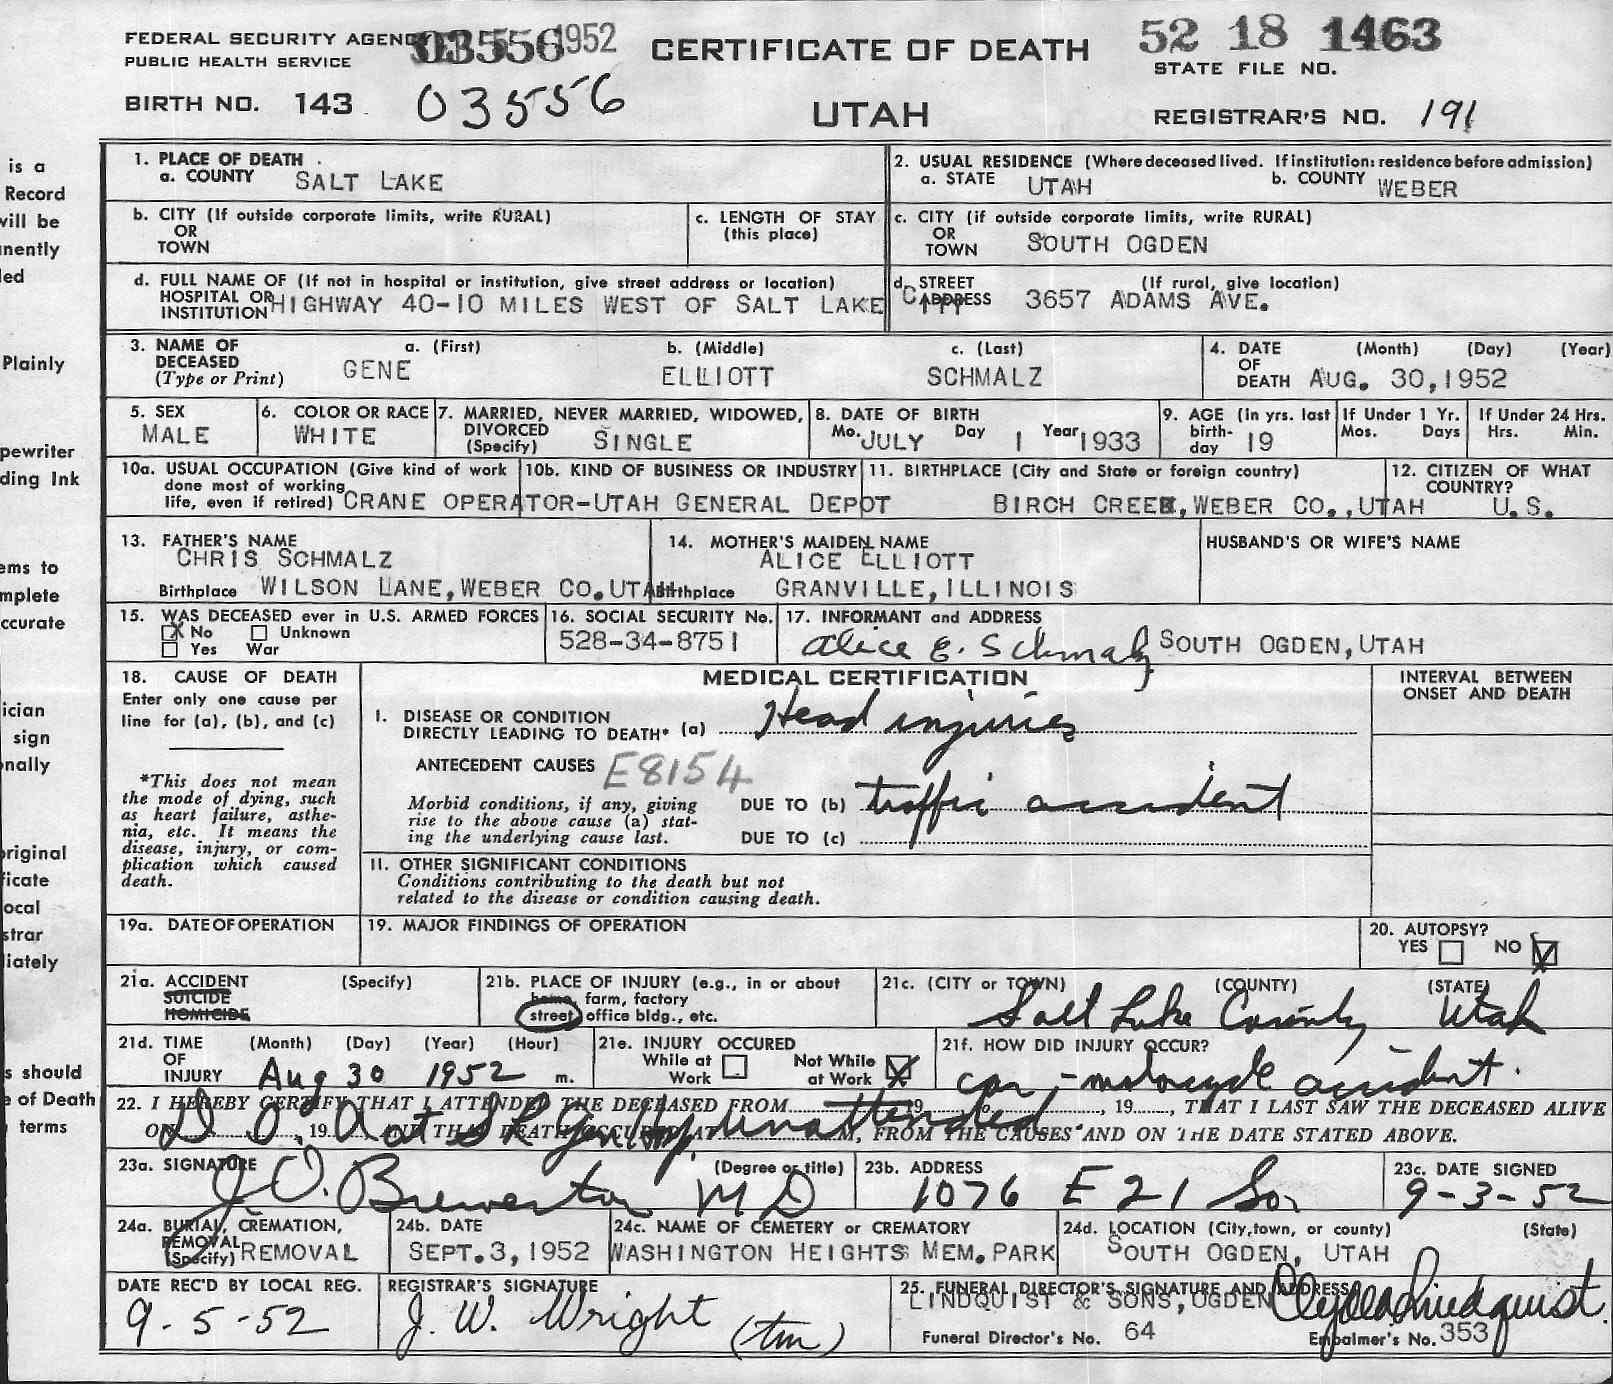 FEDERAL SECURITY AGENCY 03556 1952 CERTIFICATE OF DEATH 52 18 1463
PUBLIC HEALTH SERVICE STATE FILE NO.
BIRTH NO. 143 03556 UTAH REGISTRAR'S NO. 191
1. PLACE OF DEATH
a. COUNTY SALT LAKE
2. USUAL RESIDENCE (Where deceased lived. If institution: residence before admission)
a. STATE UTAH b. COUNTY WEBER
b. CITY (If outside corporate limits, write RURAL)
OR
TOWN
c. LENGTH OF STAY
(this place)
c. CITY (if outside corporate limits, write RURAL)
OR
TOWN SOUTH OGDEN
d. FULL NAME OF (If not in hospital or institution, give street address or location)
HOSPITAL OR
INSTITUTION HIGHWAY 40-10 MILES WEST OF SALT LAKE CITY
d. STREET (If rural, give location)
ADDRESS 3657 ADAMS AVE.
3. NAME OF a. (First) b. (Middle) c. (Last)
DECEASED GENE ELLIOTT SCHMALZ
(Type or Print)
4. DATE (Month) (Day) (Year)
OF
DEATH AUG. 30,1952
5. SEX
MALE
6. COLOR OR RACE
WHITE
7. MARRIED, NEVER MARRIED, WIDOWED,
DIVORCED
(Specify) SINGLE
8. DATE OF BIRTH
Mo. JULY Day 1 Year 1933
9. AGE (In yrs. last
birth-
day 19
If Under 1 Yr.
Mos. Days
If Under 24 Hrs.
Hrs. Min.
10a. USUAL OCCUPATION (Give kind of work
done most of working
life, even if retired) CRANE OPERATOR-UTAH GENERAL DEPOT
10b. KIND OF BUSINESS OR INDUSTRY
11. BIRTHPLACE (City and State or foreign country)
BIRCH CREEK,WEBER CO.,UTAH
12. CITIZEN OF WHAT
COUNTRY?
U.S.
13. FATHER'S NAME
CHRIS SCHMALZ
Birthplace WILSON LANE,WEBER CO.UTAH
14. MOTHER'S MAIDEN NAME
ALICE ELLIOTT
Birthplace GRANVILLE,ILLINOIS
HUSBAND'S OR WIFE'S NAME
15. WAS DECEASED ever in U.S. ARMED FORCES
X No Unknown
Yes War
16. SOCIAL SECURITY No.
528-34-8751
17. INFORMANT and ADDRESS
Alice E. Schmalz SOUTH OGDEN,UTAH
18. CAUSE OF DEATH
Enter only one cause per
line for (a), (b), and (c)
*This does not mean
the mode of dying, such
as heart failure, asthe-
nia, etc. It means the
disease, injury, or com-
plication which caused
death.
MEDICAL CERTIFICATION
INTERVAL BETWEEN
ONSET AND DEATH
I. DISEASE OR CONDITION
DIRECTLY LEADING TO DEATH* (a) Head injuries
ANTECEDENT CAUSES E8154
Morbid conditions, if any, giving
rise to the above cause (a) stat-
ing the underlying cause last.
DUE TO (b) traffic accident
DUE TO (c)
II. OTHER SIGNIFICANT CONDITIONS
Conditions contributing to the death but not
related to the disease or condition causing death.
19a. DATE OF OPERATION
19. MAJOR FINDINGS OF OPERATION
20. AUTOPSY?
YES NO X
21a. ACCIDENT (Specify)
SUICIDE
HOMICIDE
21b. PLACE OF INJURY (e.g., in or about
home, farm, factory
street, office bldg., etc.
21c. (CITY or TOWN) (COUNTY) (STATE)
Salt Lake County Utah
21d. TIME (Month) (Day) (Year) (Hour)
OF
INJURY Aug 30 1952 m.
21e. INJURY OCCURED
While at Work Not While at Work X
21f. HOW DID INJURY OCCUR?
car - motorcycle accident.
22. I HEREBY CERTIFY THAT I ATTENDED THE DECEASED FROM 19 to , 19 , THAT I LAST SAW THE DECEASED ALIVE
ON , 19 AND THAT DEATH OCCURRED AT M, FROM THE CAUSES AND ON THE DATE STATED ABOVE.
D.O.A at SL Gen Hosp unattended
23a. SIGNATURE (Degree or title)
J O. Brewerton M D
23b. ADDRESS
1076 E 21 So.
23c. DATE SIGNED
9-3-52
24a. BURIAL, CREMATION,
REMOVAL
(Specify) REMOVAL
24b. DATE
SEPT.3,1952
24c. NAME OF CEMETERY or CREMATORY
WASHINGTON HEIGHTS MEM.PARK
24d. LOCATION (City, town, or county) (State)
SOUTH OGDEN, UTAH
DATE REC'D BY LOCAL REG.
9-5-52
REGISTRAR'S SIGNATURE
J. W. Wright (tm)
25. FUNERAL DIRECTOR'S SIGNATURE AND ADDRESS
LINDQUIST & SONS,OGDEN
Funeral Director's No. 64 Embalmer's No. 353
is a
Record
will be
nently
ed
Plainly
pewriter
ding Ink
ems to
mplete
ccurate
ician
sign
nally
original
ficate
ocal
strar
iately
s should
e of Death
terms